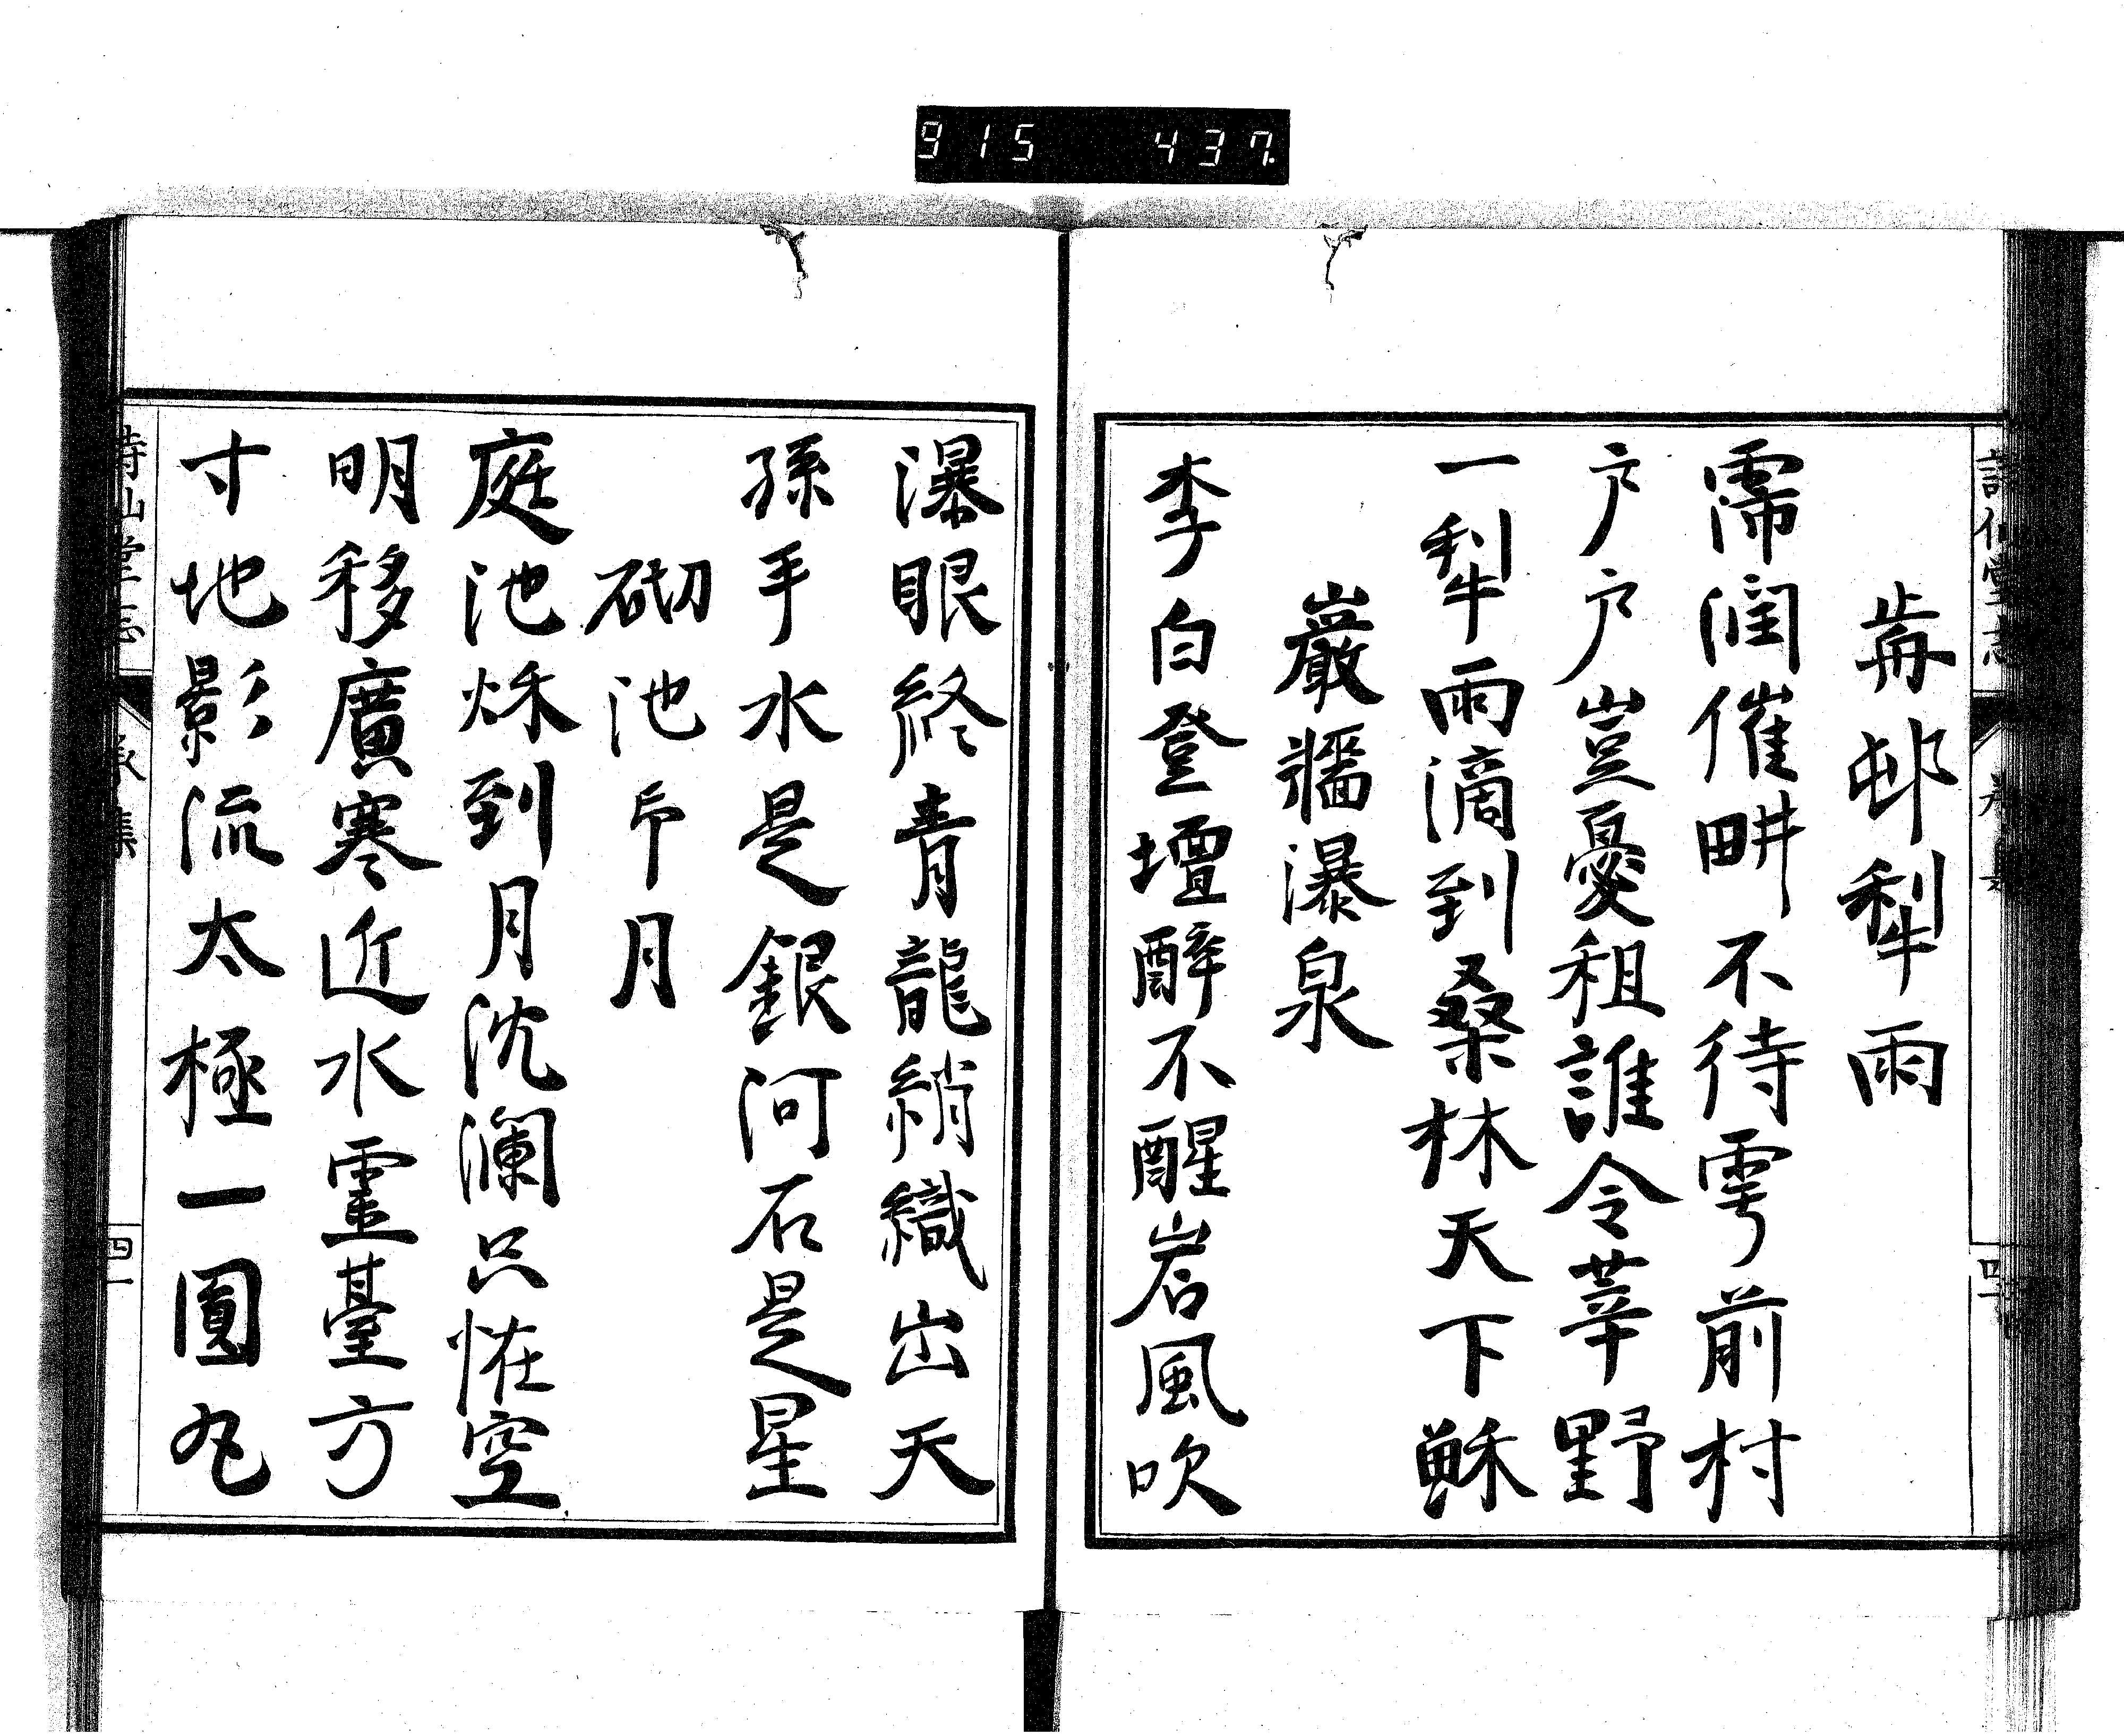 915 437
歬邨犁雨
霈潤催畊不待雩前村
戶戶豈憂租誰令莘野
一犁雨滴到桑林天下穌
巖牆瀑泉
李白登壇醉不醒岩風吹
瀑眼終青龍綃織出天
孫手水是銀河石是星
砌池印月
庭池秌到月沈瀾只恠空
明移廣寒近水靈臺方
寸地影流太極一圓丸
詩仙堂志
四
詩仙堂志 承集
四一